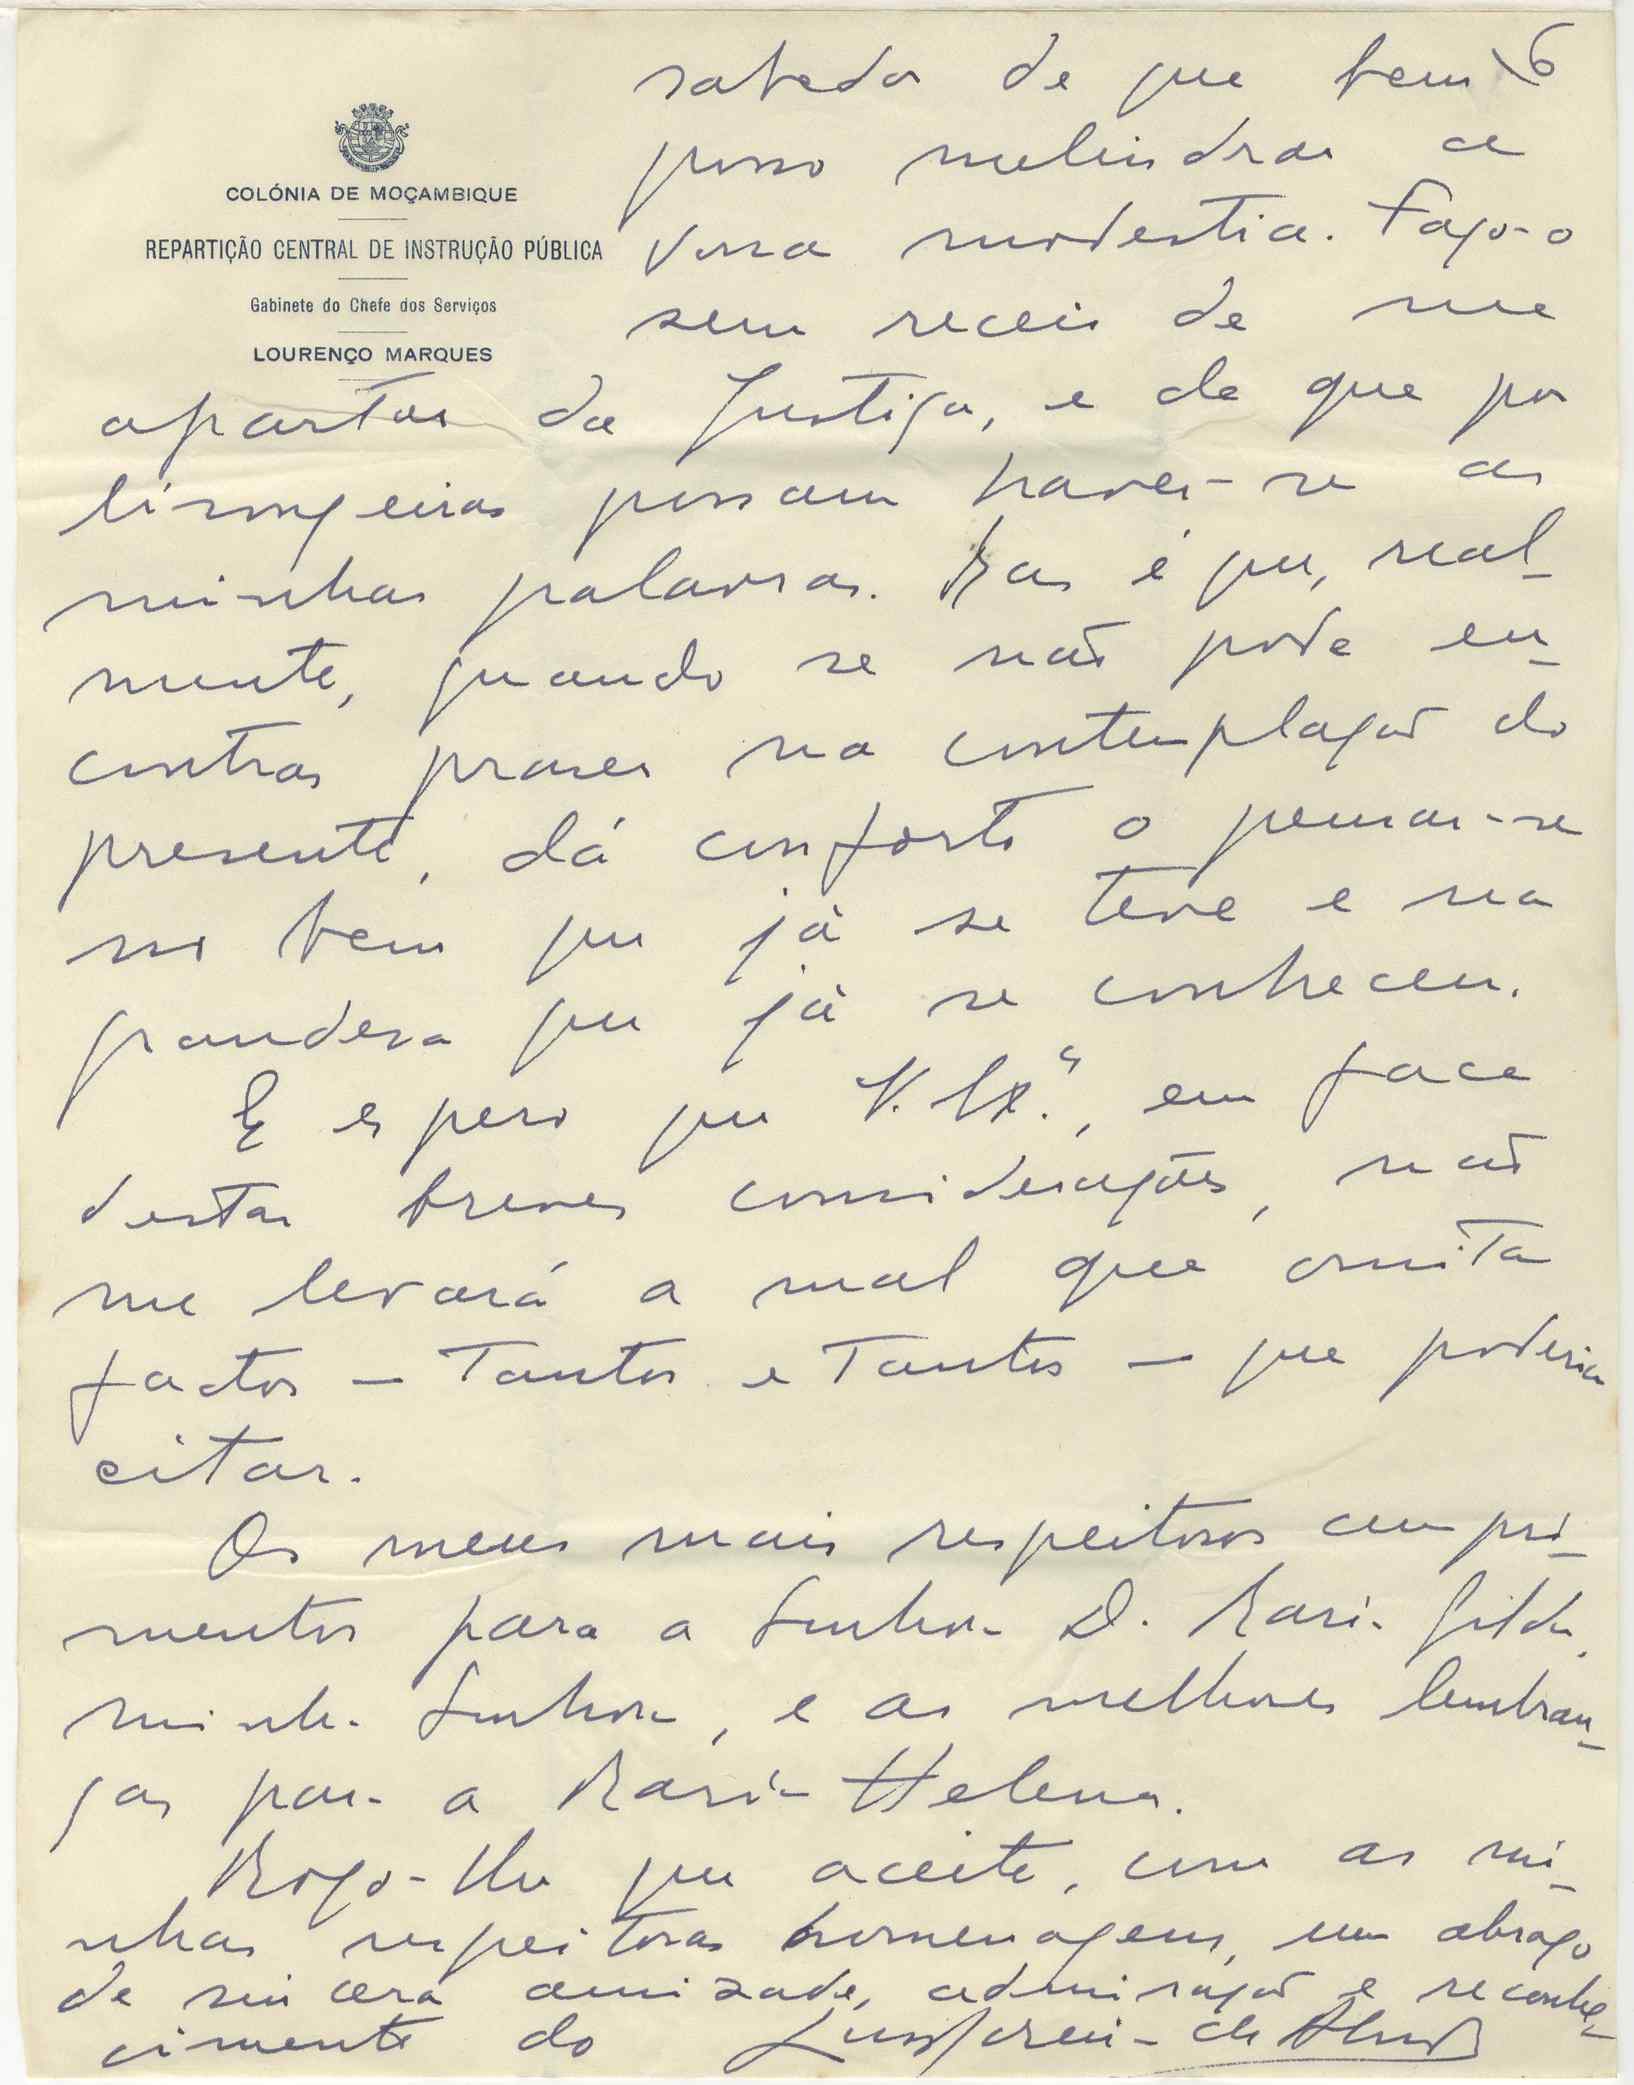 6
COLÓNIA DE MOÇAMBIQUE
REPARTIÇÃO CENTRAL DE INSTRUÇÃO PÚBLICA
Gabinete do Chefe dos Serviços
LOURENÇO MARQUES
sabedor de que bem
posso melindrar a
vossa modestia. Faço-o
sem receio de me
apartar da Justiça, e de que por
lisongeiras possam haver-se as
minhas palavras. Mas é que, real-
mente, quando se não pode en-
contrar prazer na contemplação do
presente, dá conforto o pensar-se
no bem que já se teve e na
grandeza que já se conheceu.
E espero que V. Exª., em face
destas breves considerações, não
me levará a mal que omita
factos — tantos e tantos — que poderia
citar.
Os meus mais respeitosos cumpri-
mentos para a Senhora D. Maria Gilda,
minha Senhora, e as melhores lembran-
ças para a Maria Helena.
Rogo-lhe que aceite, com as mi-
nhas respeitosas homenagens, um abraço
de sincera amizade, admiração e reconhe-
cimento do